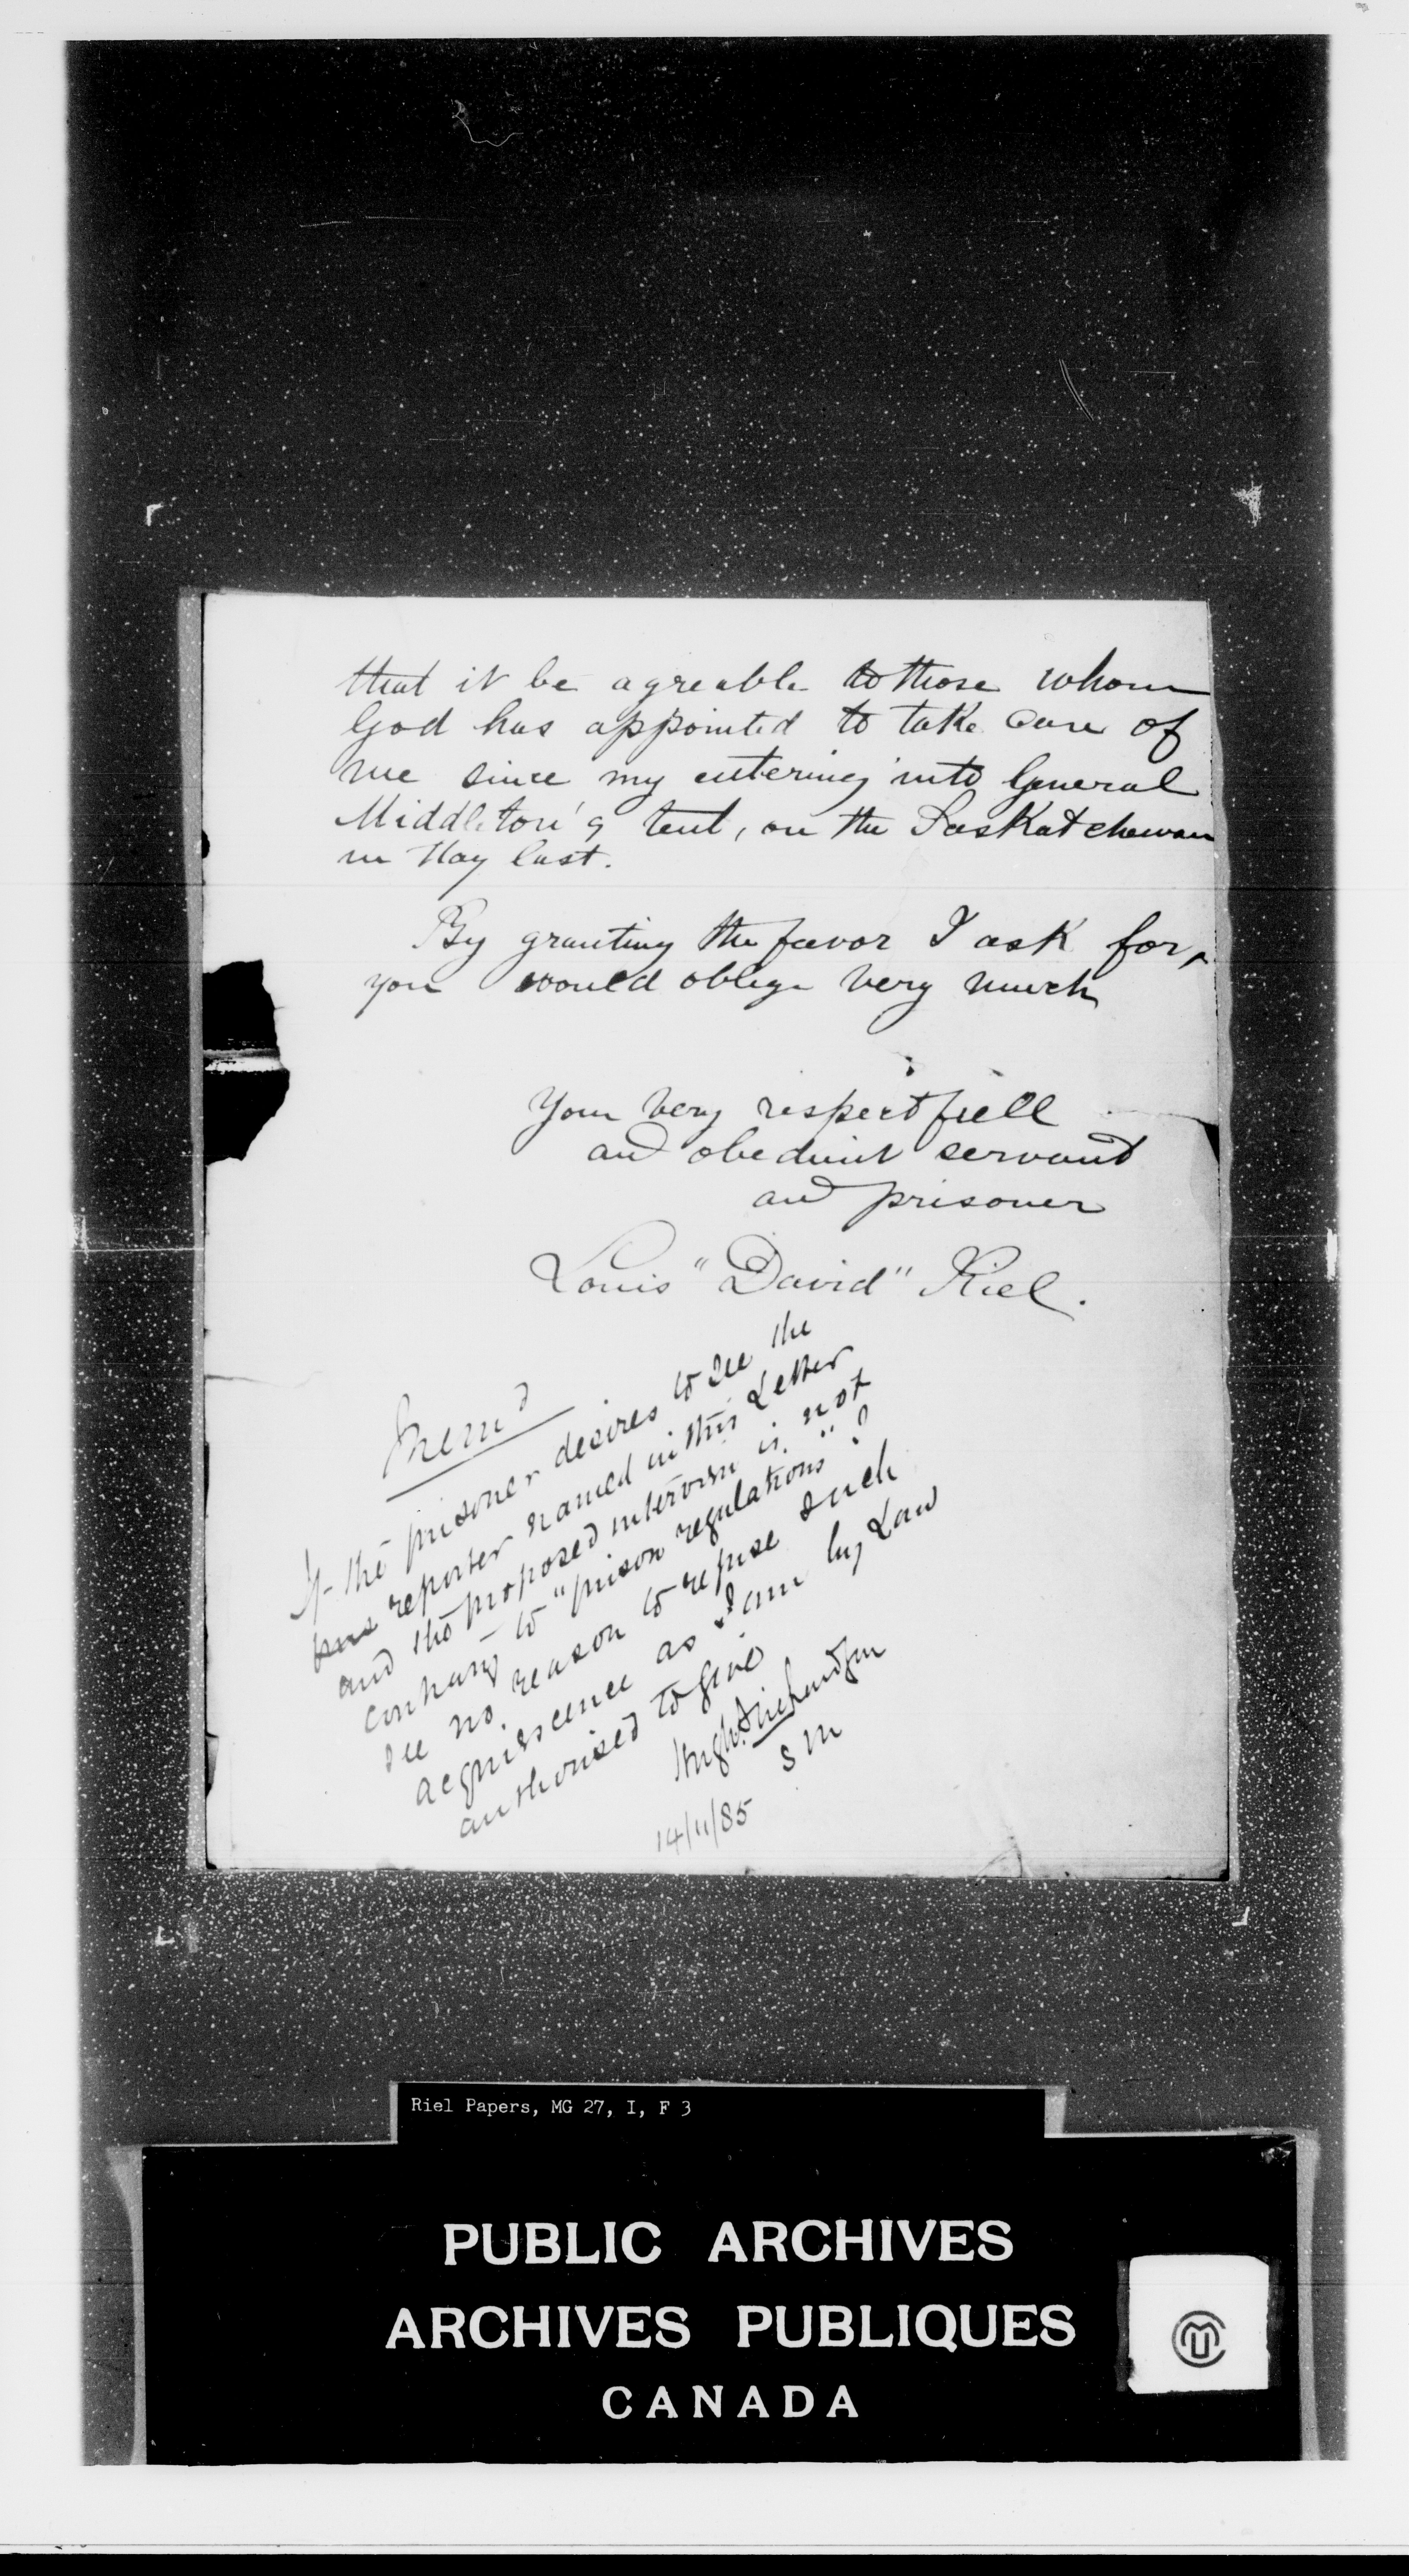 that it be agreable to those whom
God has appointed to take care of
me since my entering into General
Middleton's tent, on the Saskatchewan
in May last.
By granting the favor I ask for,
you would oblige very much
Your very respectfull
and obedient servant
and prisoner
Louis "David" Riel.
Memo
If the prisoner desires to see the
reporter named in this Letter
and the proposed interview is not
contrary to "prison regulations" I
see no reason to refuse such
acquiescence as I am by Law
authorised to give
Hugh Richardson
S M
14/11/85
Riel Papers, MG 27, I, F 3
PUBLIC ARCHIVES
ARCHIVES PUBLIQUES
CANADA